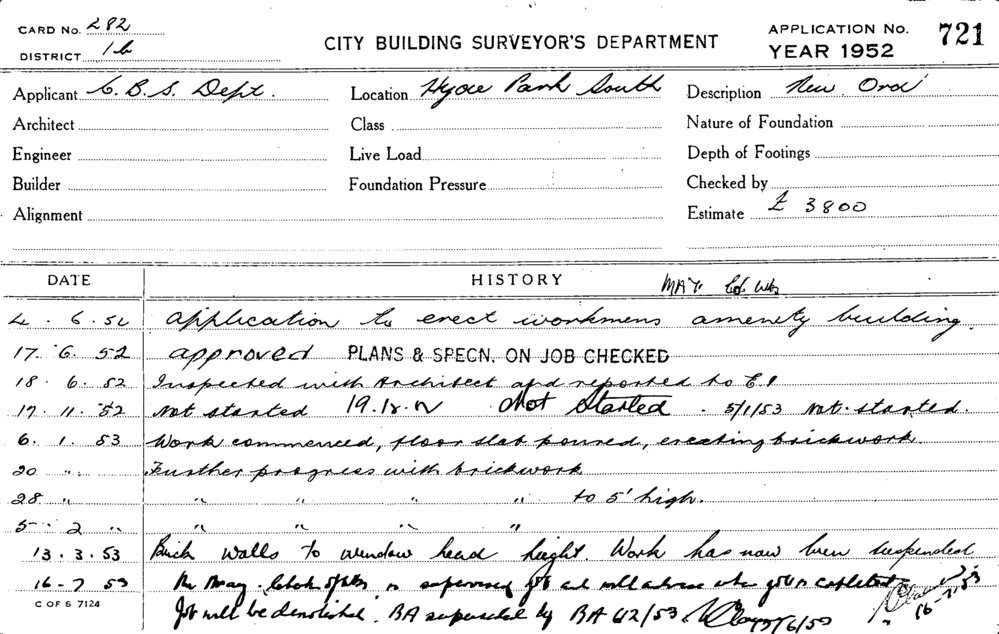 CARD No. 282
DISTRICT 1b
CITY BUILDING SURVEYOR'S DEPARTMENT
APPLICATION No. 721
YEAR 1952
Applicant C.B.S. Dept. Location Hyde Park South Description New Ord
Architect Class Nature of Foundation
Engineer Live Load Depth of Footings
Builder Foundation Pressure Checked by
Alignment Estimate £ 3800
DATE HISTORY
4.6.52 Application to erect workmens amenity building.
17.6.52 approved PLANS & SPECN. ON JOB CHECKED
18.6.52 Inspected with Architect and reported to
17.11.52 Not started Not Started. 5/1/53 not started.
6.1.53 Work commenced, floor slab poured, erecting brickwork
20 " Further progress with brickwork
28 " " " " " to 5' high.
5 2 " " " " "
13.3.53 Brick walls to window head height Work has now been suspended
16-7 53 Mr is supervising job and will advise when job is completed
Job will be demolished. BA superseded by BA 612/53
C OF S 7124
16-7-53